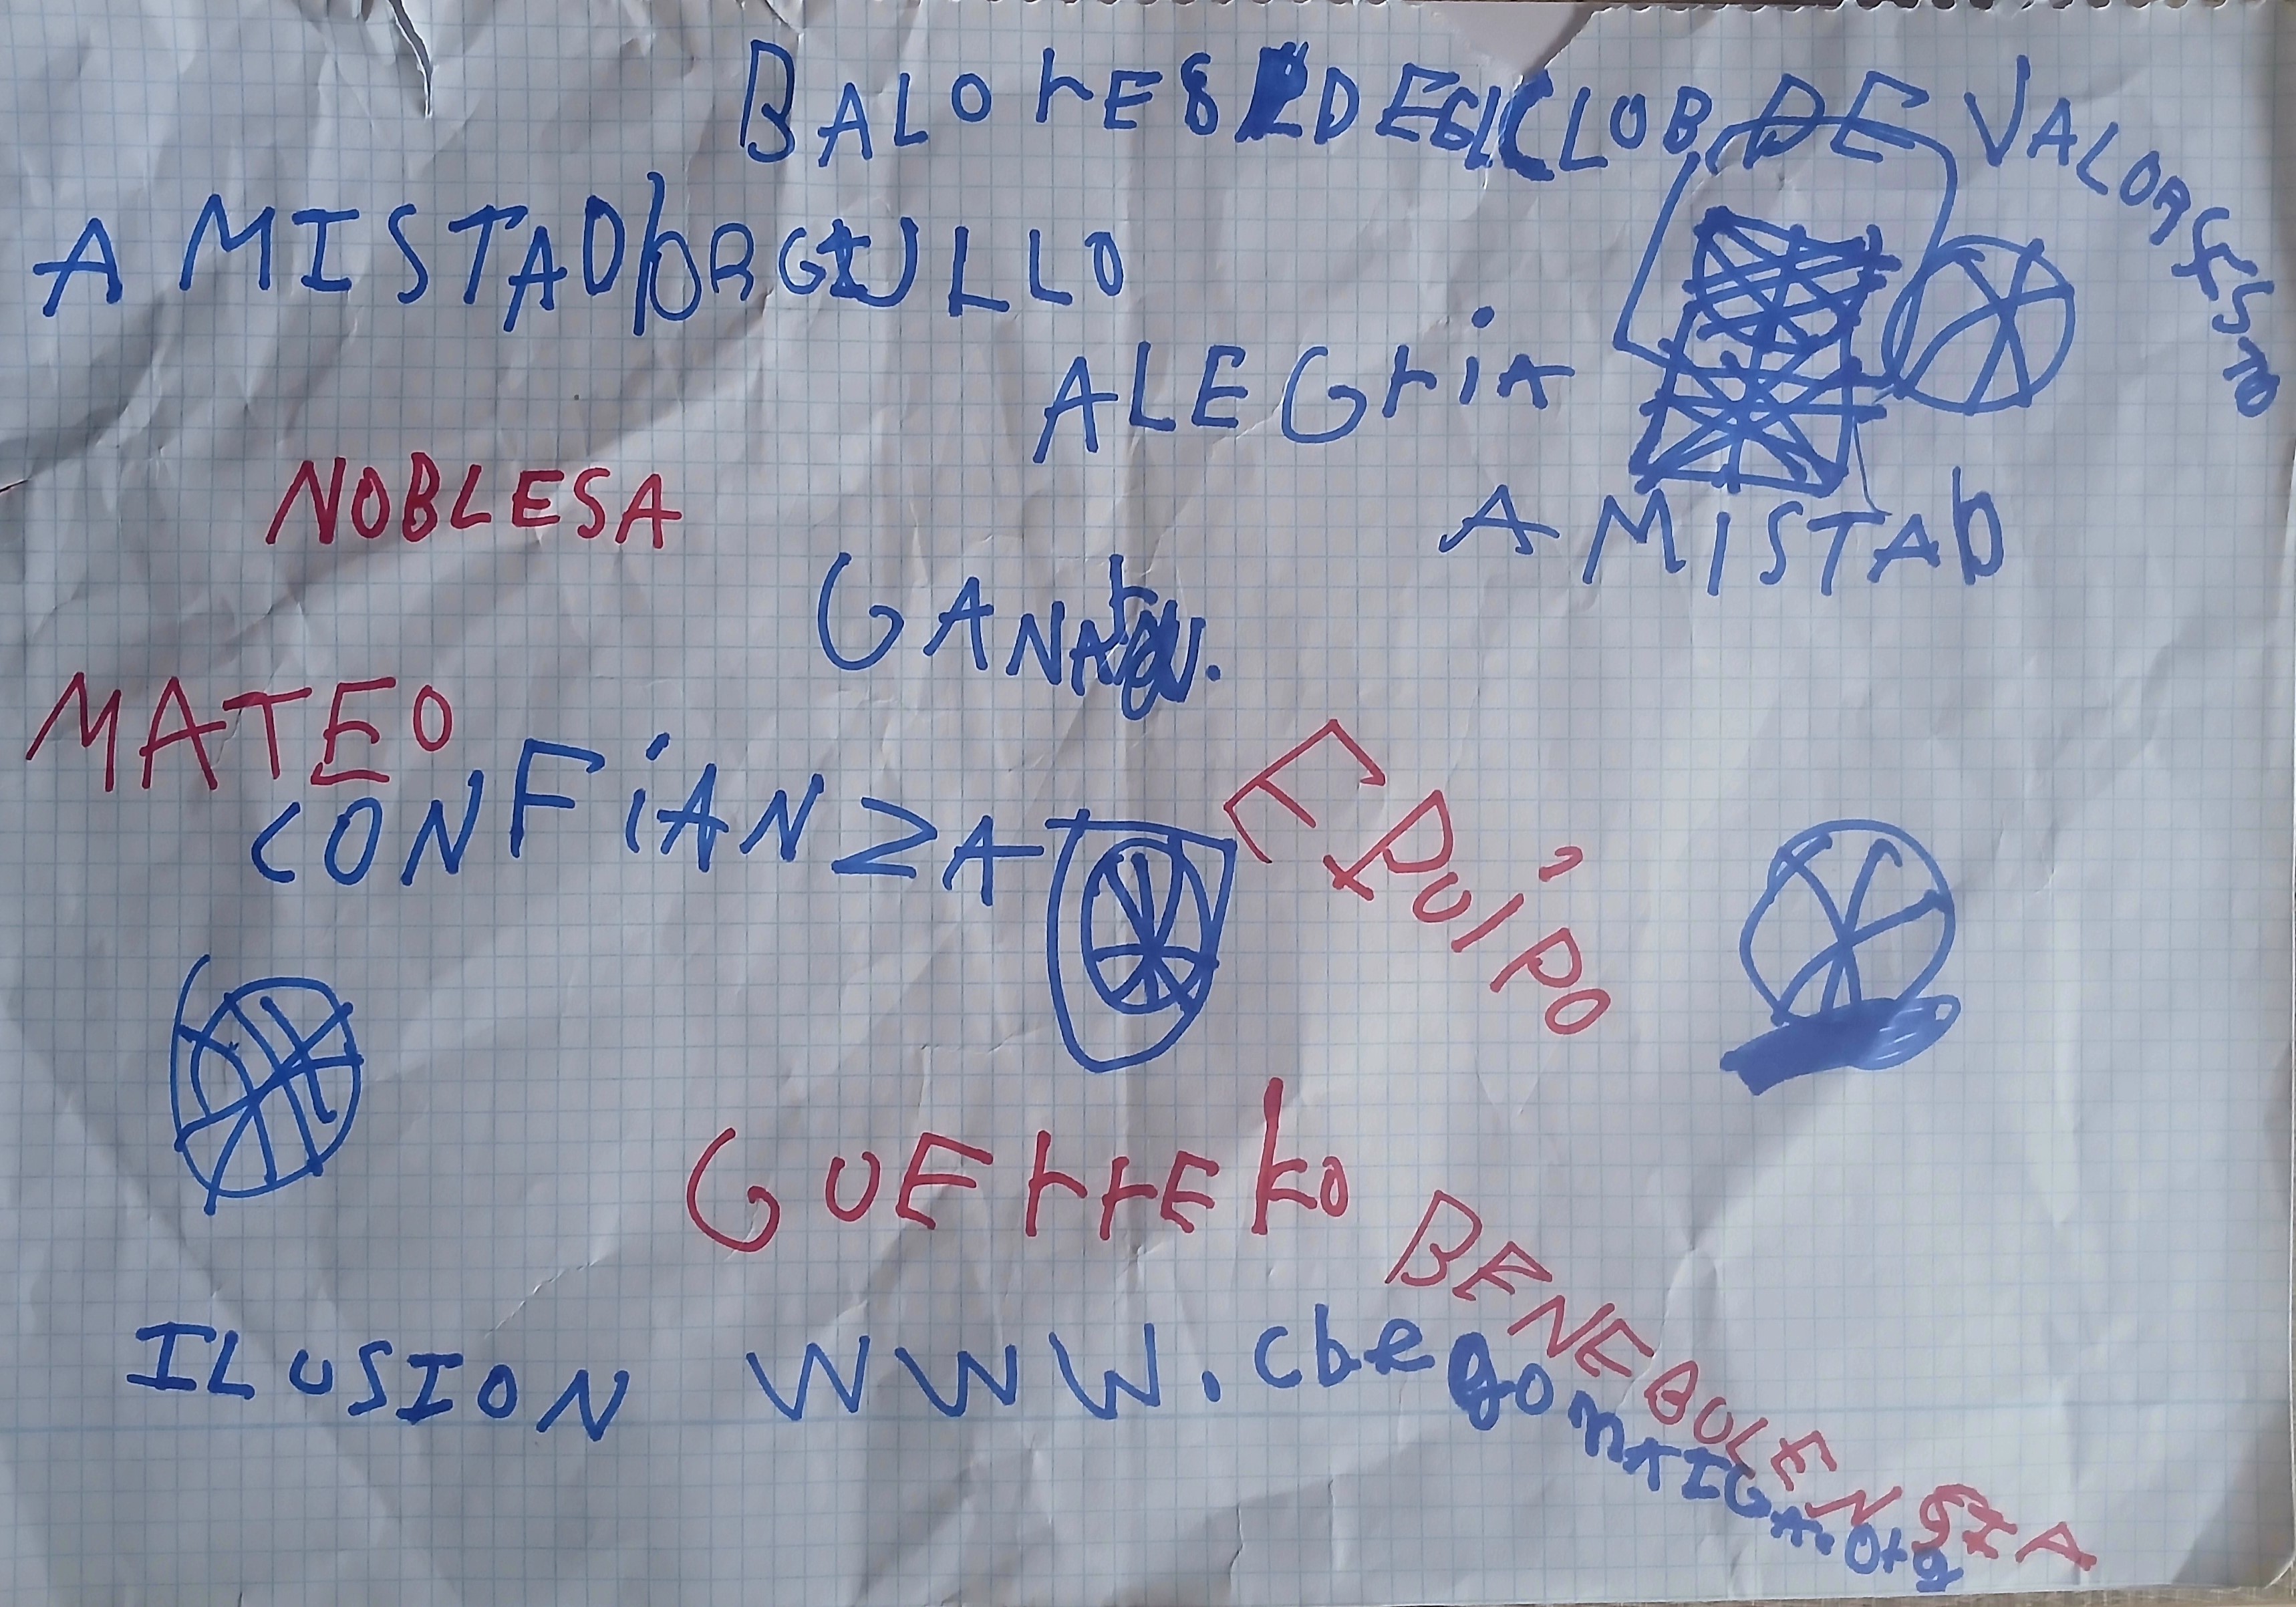 BALOrES DEL CLOB DE
AMISTAD/ORGULLO
ALEGriA
NOBLESA
AMISTAD
MATEO
CONFiANZA
EPUIPO
GUErrErO
BENEBOLENSIA
ILUSION www.cbegonAIGA.org